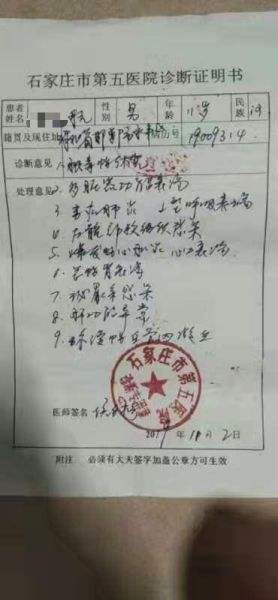 石家庄市第五医院诊断证明书
患者姓名 性别 男 年龄 11岁 民族 汉
籍贯及现住址 河北省邯郸市 病历号 19009314
诊断意见 1.脓毒性休克
处理意见 2.多脏器功能衰竭
3.重症肺炎 I型呼吸衰竭
4.左髋部软组织感染
5.心肌炎 心力衰竭
6.急性肾衰竭
7.
8.肝功能异常
9.弥漫性血管内凝血
石家庄市第五医院
医师签名
2019年11月2日
附注 必须有大夫签字加盖公章方可生效